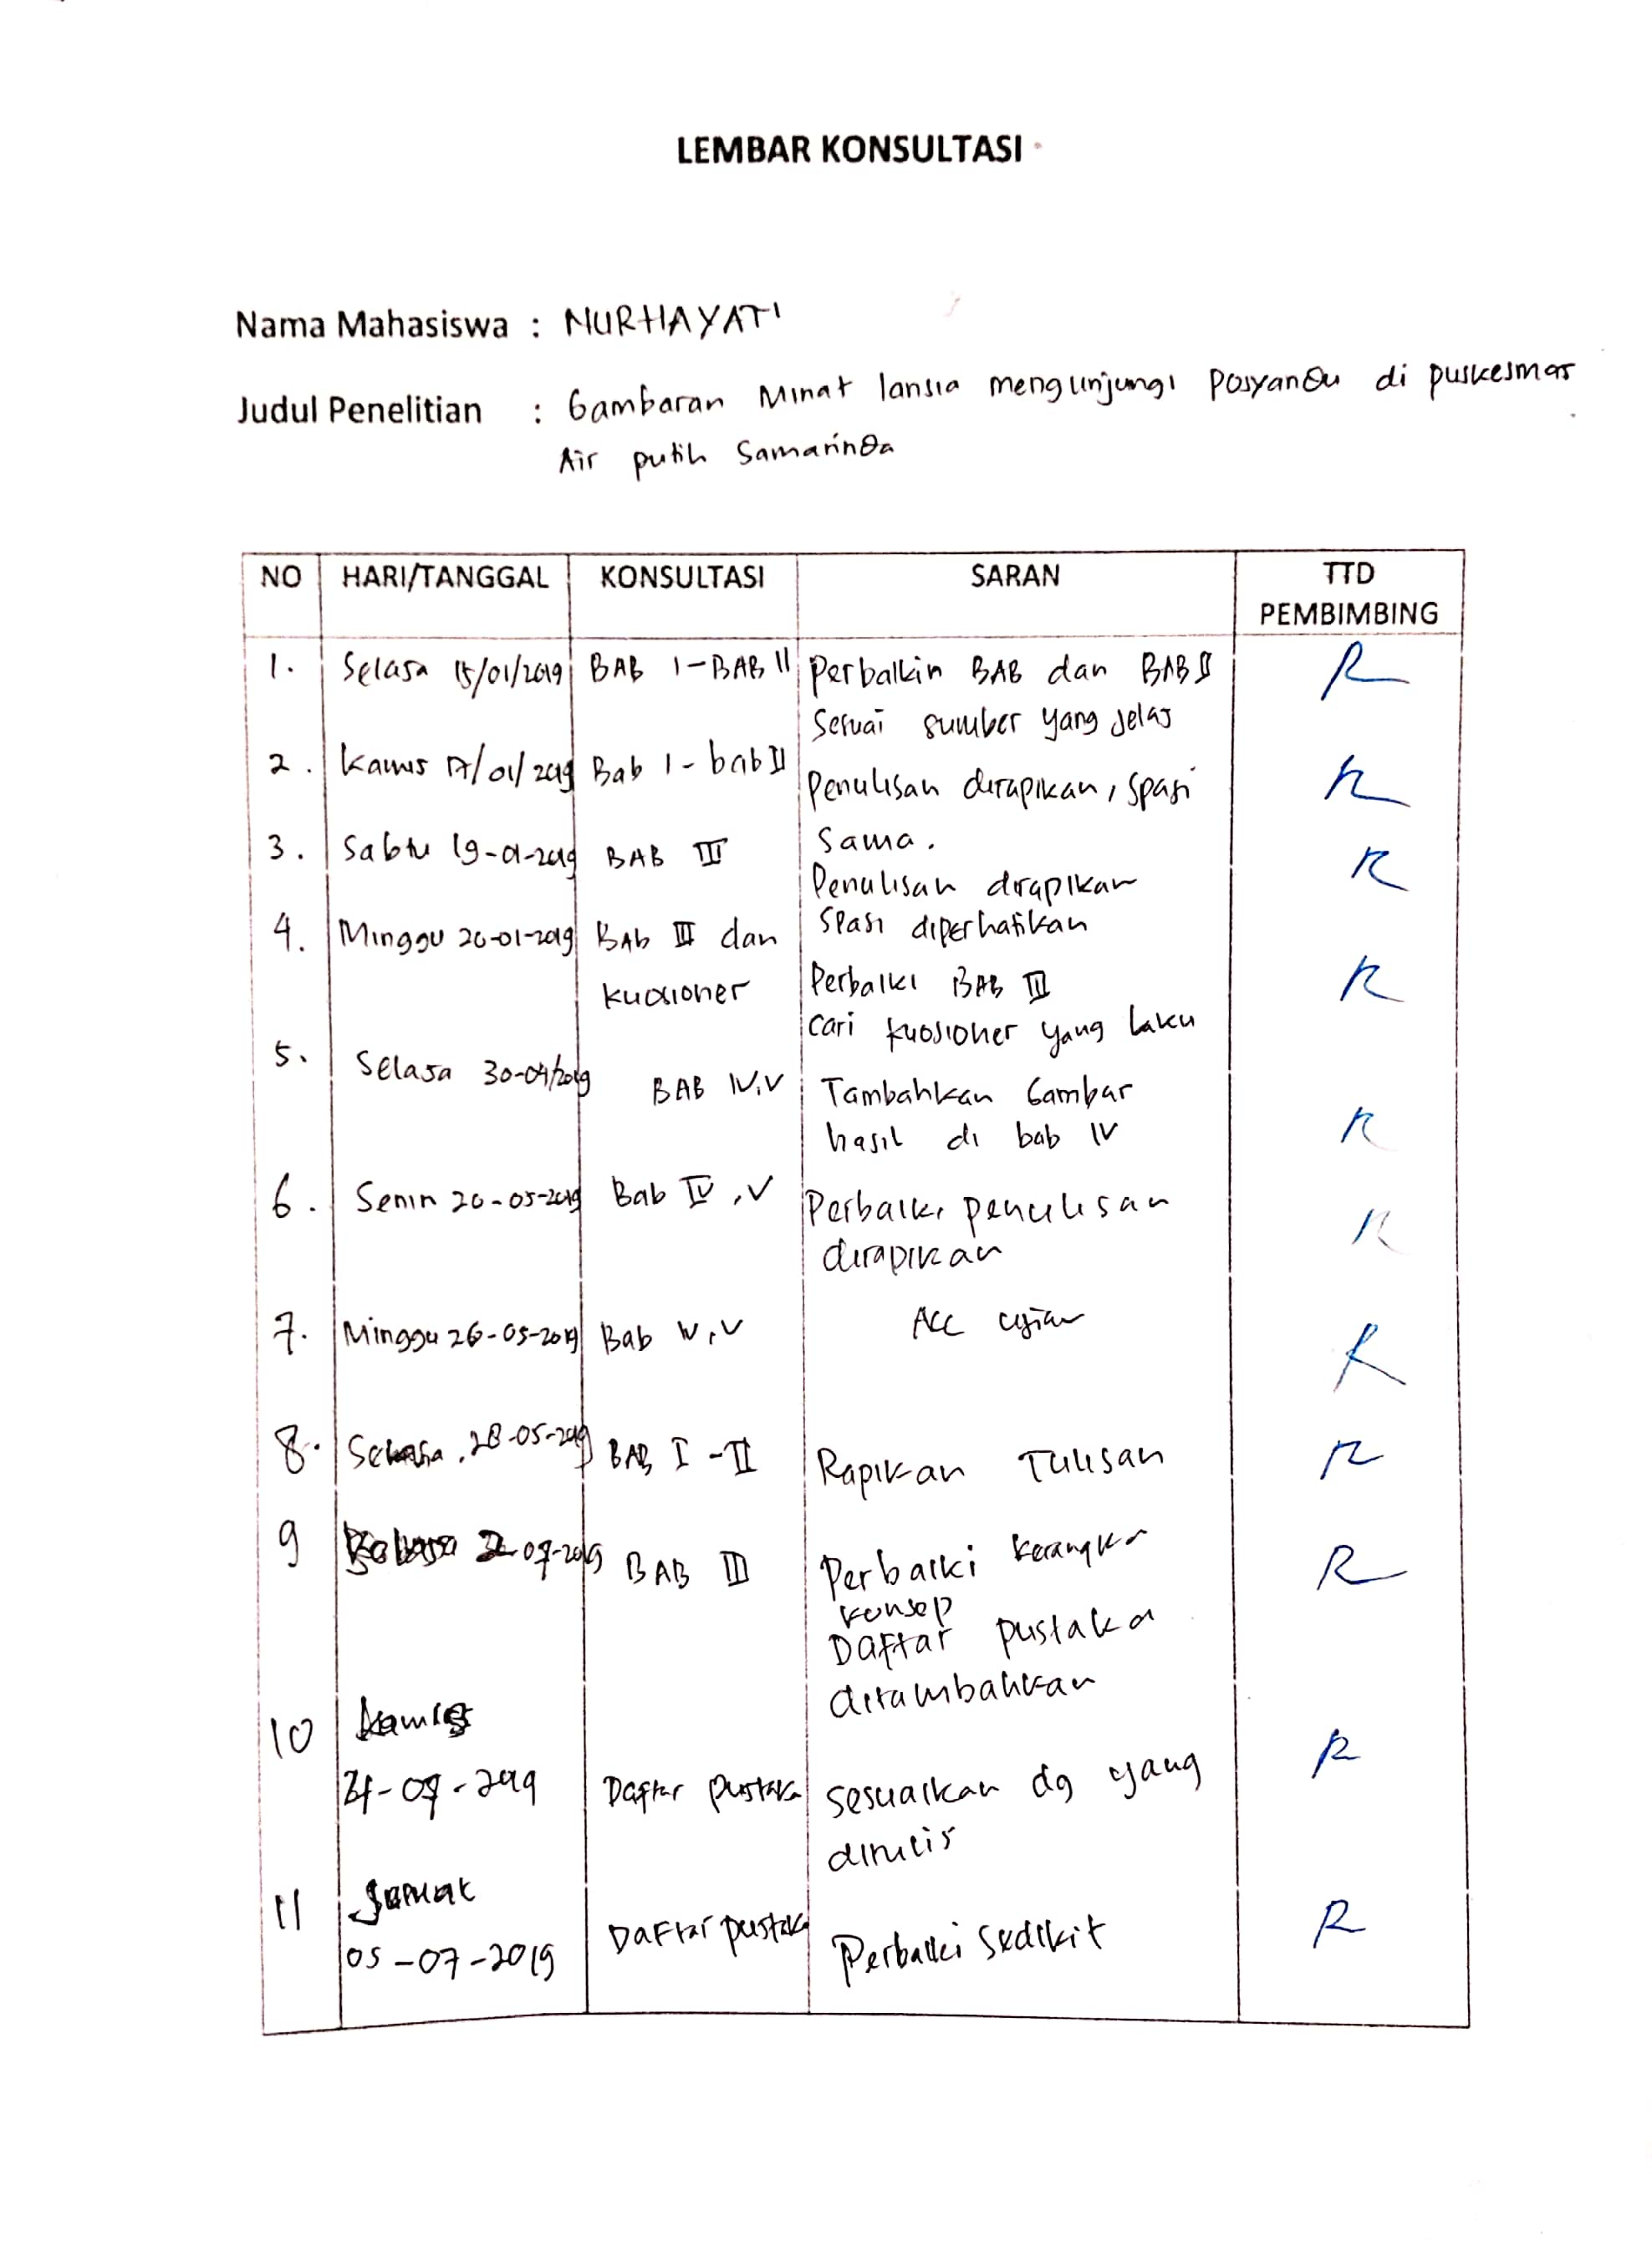 LEMBAR KONSULTASI
Nama Mahasiswa : NURHAYATI
Judul Penelitian : Gambaran Minat lansia mengunjungi Posyandu di puskesmas
Air putih Samarinda
NO HARI/TANGGAL KONSULTASI SARAN TTD
PEMBIMBING
1. Selasa 15/01/2019 BAB I-BAB II Perbaikin BAB dan BAB II
Sesuai sumber yang jelas
2. Kamis 17/01/2019 Bab I - bab II Penulisan dirapikan, spasi
sama.
3. Sabtu 19-01-2019 BAB III Penulisan dirapikan
spasi diperhatikan
4. Minggu 20-01-2019 BAb III dan Perbaiki BAB III
kuosioner cari kuosioner yang baku
5. Selasa 30-04/2019 BAB IV,V Tambahkan Gambar
hasil di bab IV
6. Senin 20-05-2019 Bab IV, V Perbaiki penulisan
dirapikan
7. Minggu 26-05-2019 Bab IV,V Acc ujian
8. Selasa, 28-05-2019 BAB I - II Rapikan Tulisan
9 07-2019 BAB III Perbaiki kerangka
konsep
Daftar pustaka
ditambahkan
10 Kamis
07-2019 Daftar pustaka sesuaikan dg yang
ditulis
11 Jumat
05-07-2019 Daftar pustaka Perbaiki sedikit